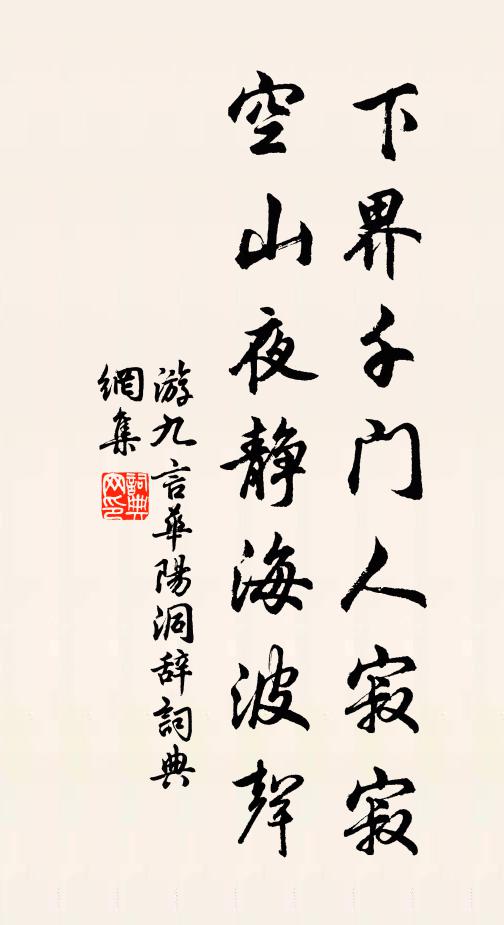 下界千门人寂寂
空山夜静海波聲
游九言華陽洞辞詞典
網集
詞典网印